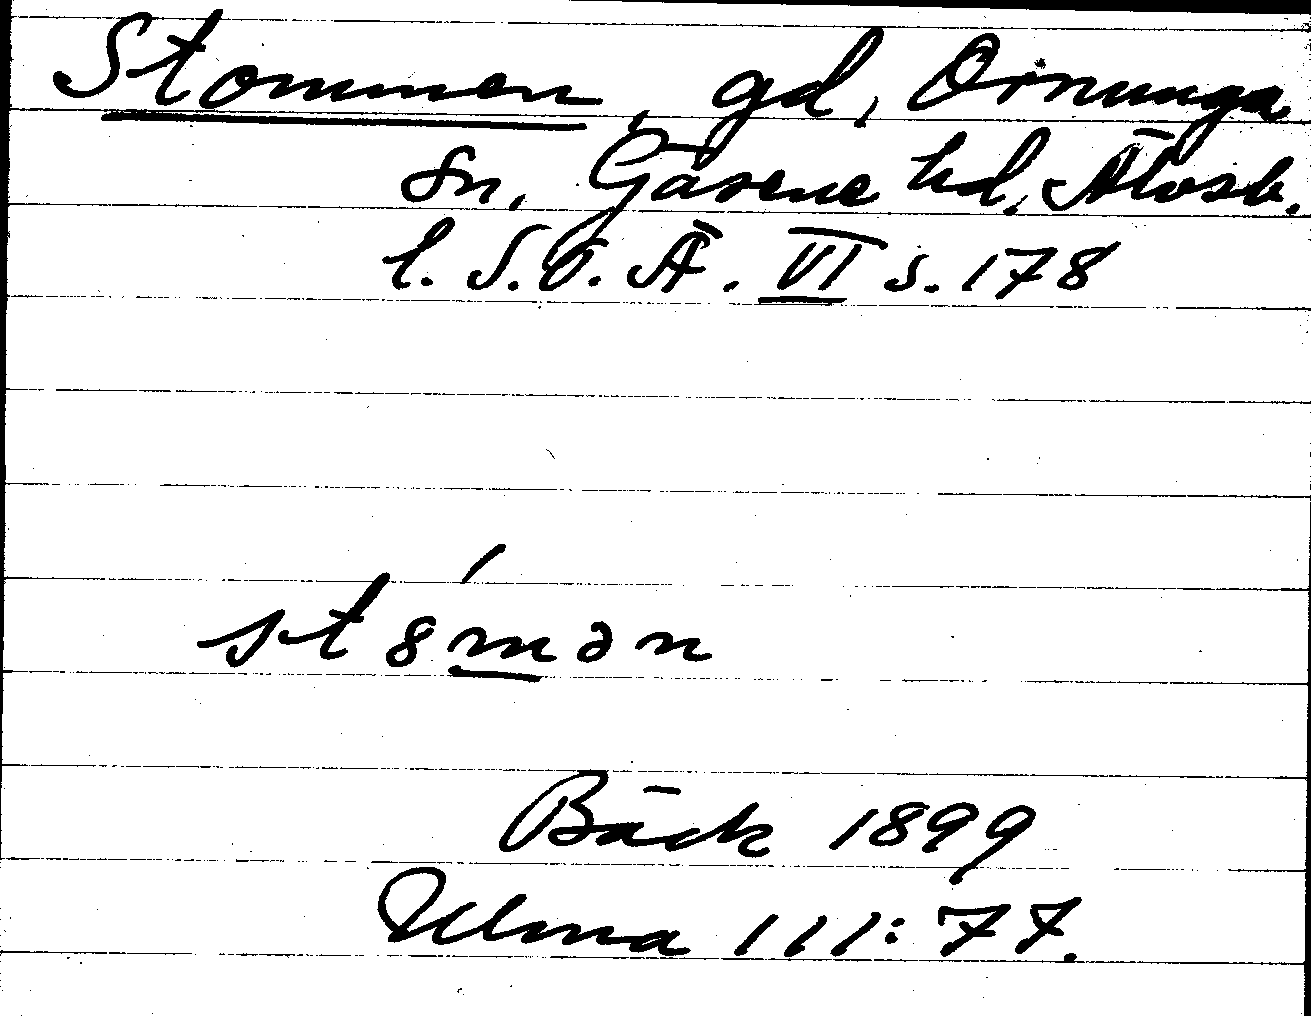 Stommen, gd, Ornunga
sn, Gäsene hd, Älvsb.
l. S.O.Ä. VI s. 178
st8́mən
Bäck 1899
Ulma 111:77.